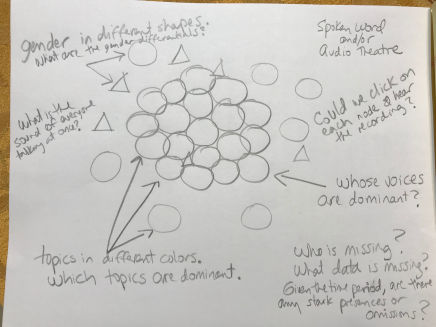 gender in different shapes.
What are the gender differentials?
Spoken Word
and/or
Audio Theatre
What is the
sound of everyone
talking at once?
Could we click on
each node & hear
the recording?
whose voices
are dominant?
topics in different colors.
which topics are dominant.
Who is missing?
What data is missing?
Given the time period, are there
any stark presences or
omissions?